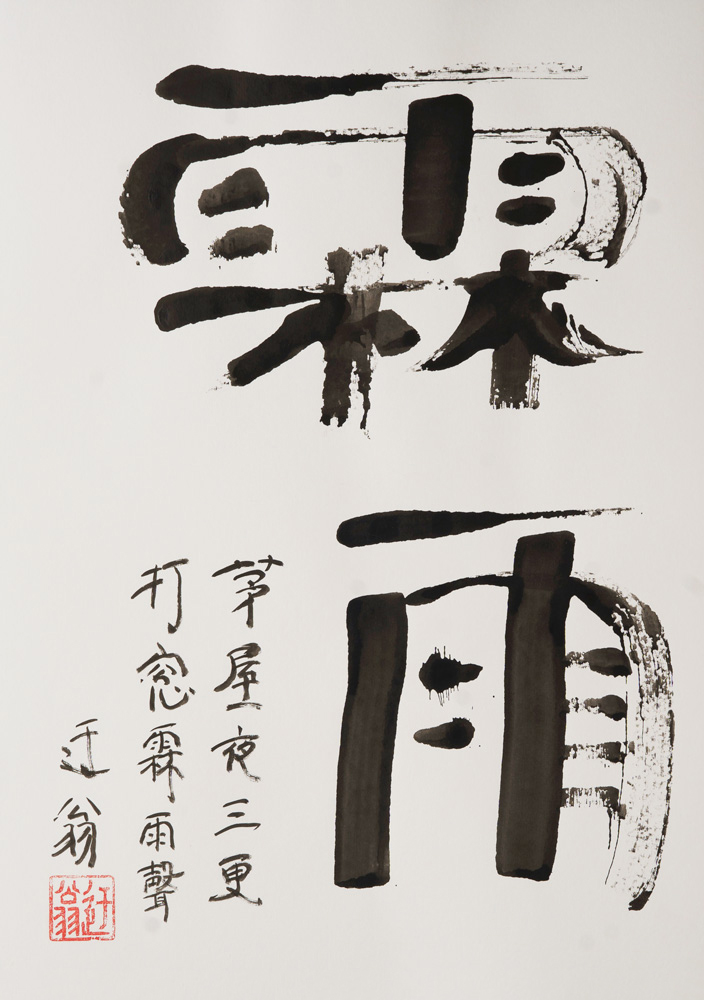 霖雨
茅屋夜三更
打窓霖雨聲
迂翁
迂翁